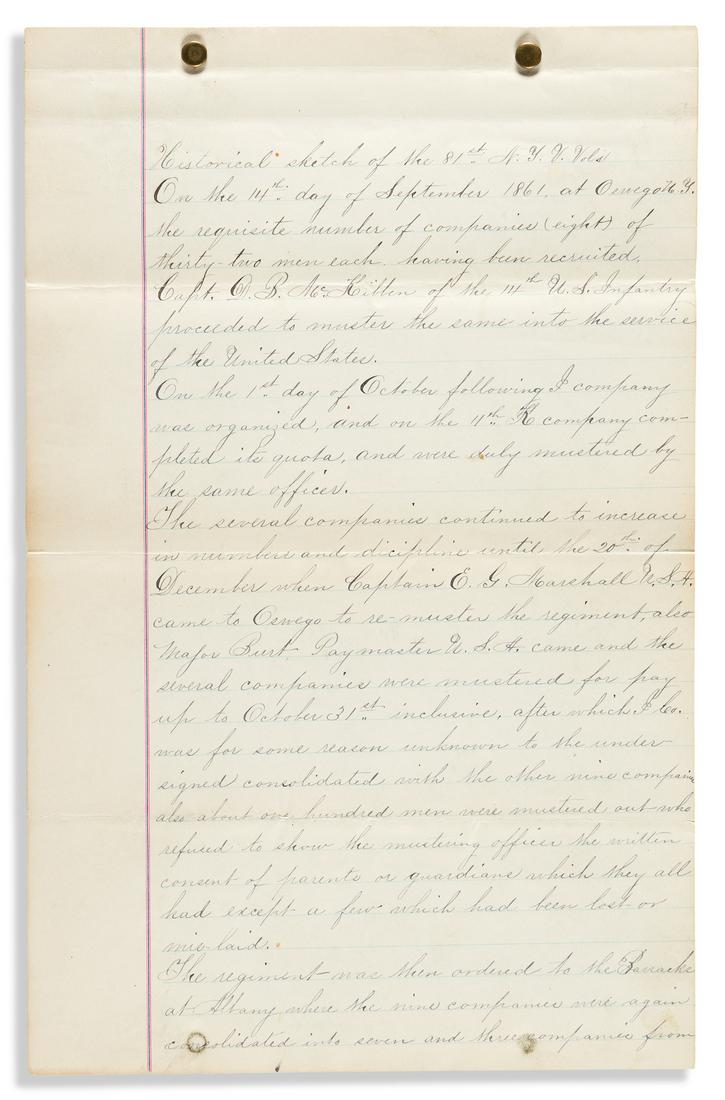 Historical sketch of the 81st N. Y. V. Vols
On the 14th day of September 1861. at Oswego N. Y.
the requisite number of companies (eight) of
thirty-two men each having been recruited,
Capt. D. B. McKibben of the 14th U. S. Infantry
proceeded to muster the same into the service
of the United States.
On the 1st day of October following I company
was organized, and on the 11th K company com-
pleted its quota, and were duly mustered by
the same officer.
The several companies continued to increase
in numbers and dicipline until the 20th of
December when Captain E. G. Marshall U. S. A.
came to Oswego to re-muster the regiment, also
Major Burt Paymaster U. S. A. came and the
several companies were mustered for pay
up to October 31st inclusive, after which I Co.
was for some reason unknown to the under-
signed consolidated with the other nine companies
also about one hundred men were mustered out who
refused to show the mustering officer the written
consent of parents or guardians which they all
had except a few which had been lost or
mis-laid.
The regiment was then ordered to the Barracks
at Albany where the nine companies were again
consolidated into seven and three companies from